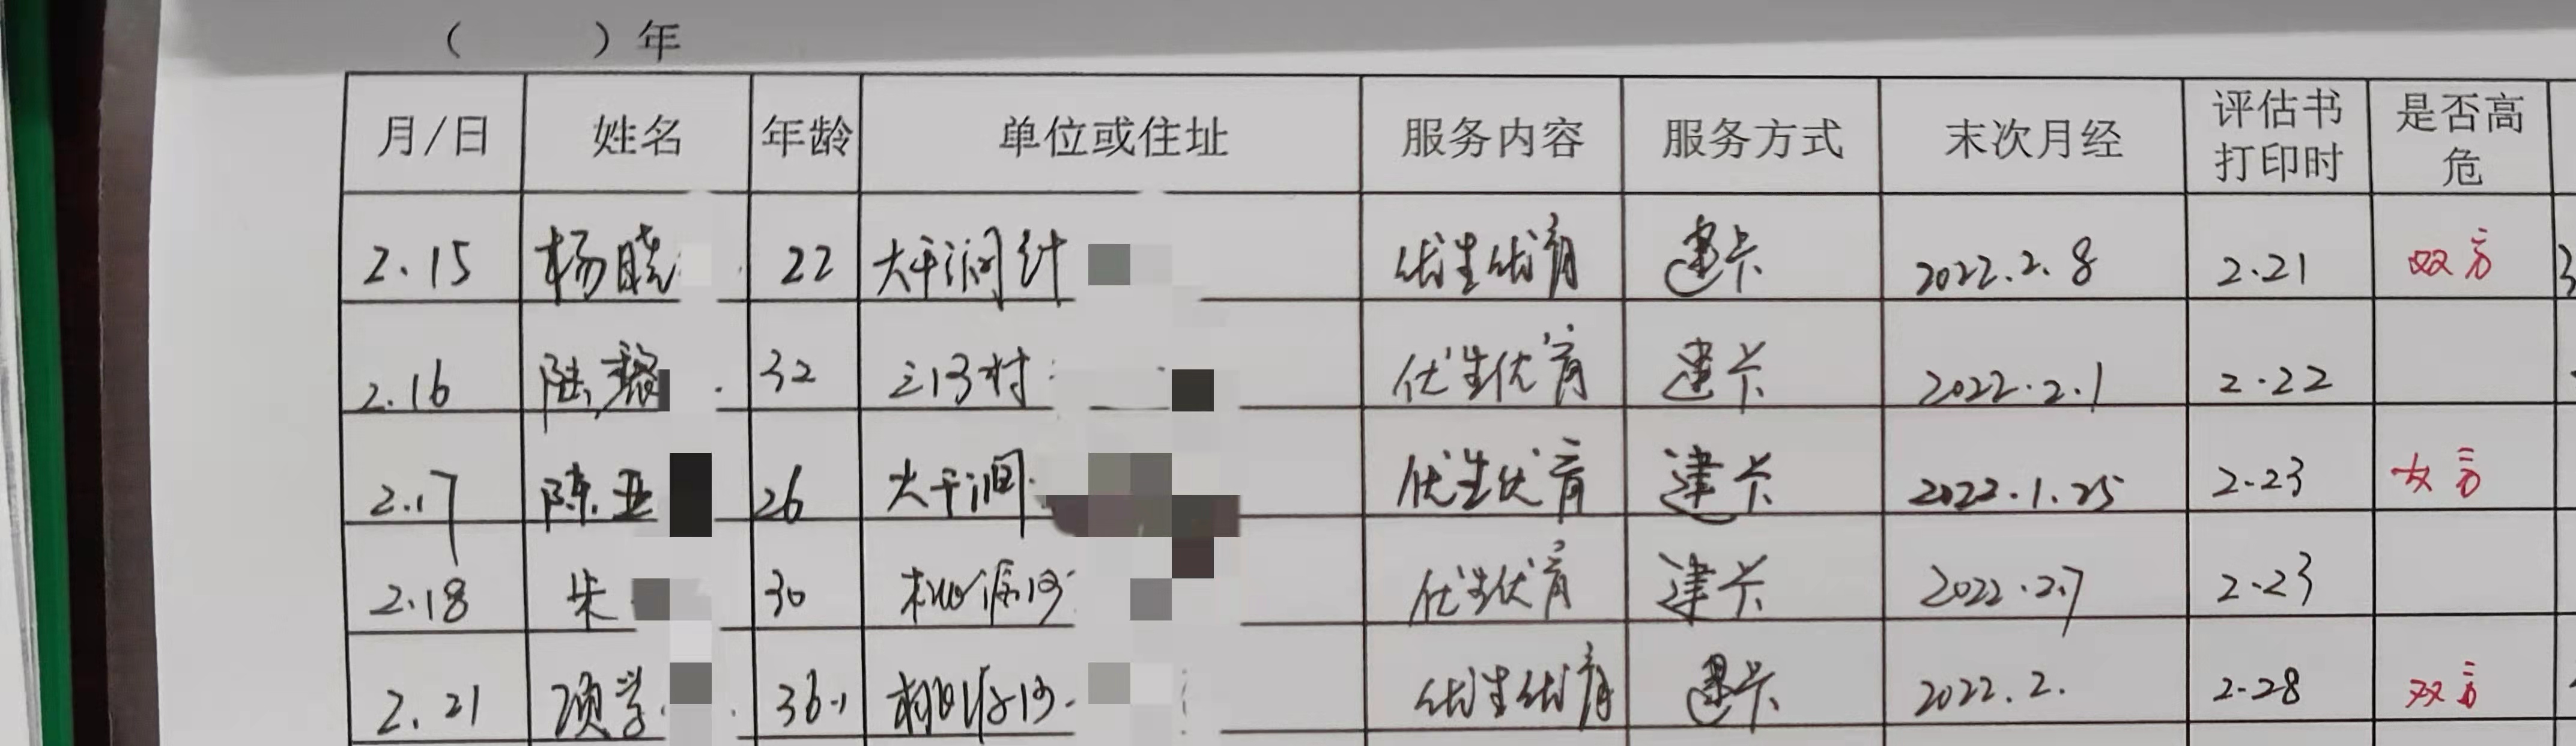 （ ）年
月/日 姓名 年龄 单位或住址 服务内容 服务方式 末次月经 评估书打印时 是否高危
2.15 杨晓 22 大平涧 优生优育 建卡 2022.2.8 2.21 双方
2.16 陆黎 32 村 优生优育 建卡 2022.2.1 2.22
2.17 陈亚 26 大平涧 优生优育 建卡 2022.1.25 2.23 女方
2.18 朱 30 优生优育 建卡 2022.2.7 2.23
2.21 项学 36 优生优育 建卡 2022.2. 2.28 双方